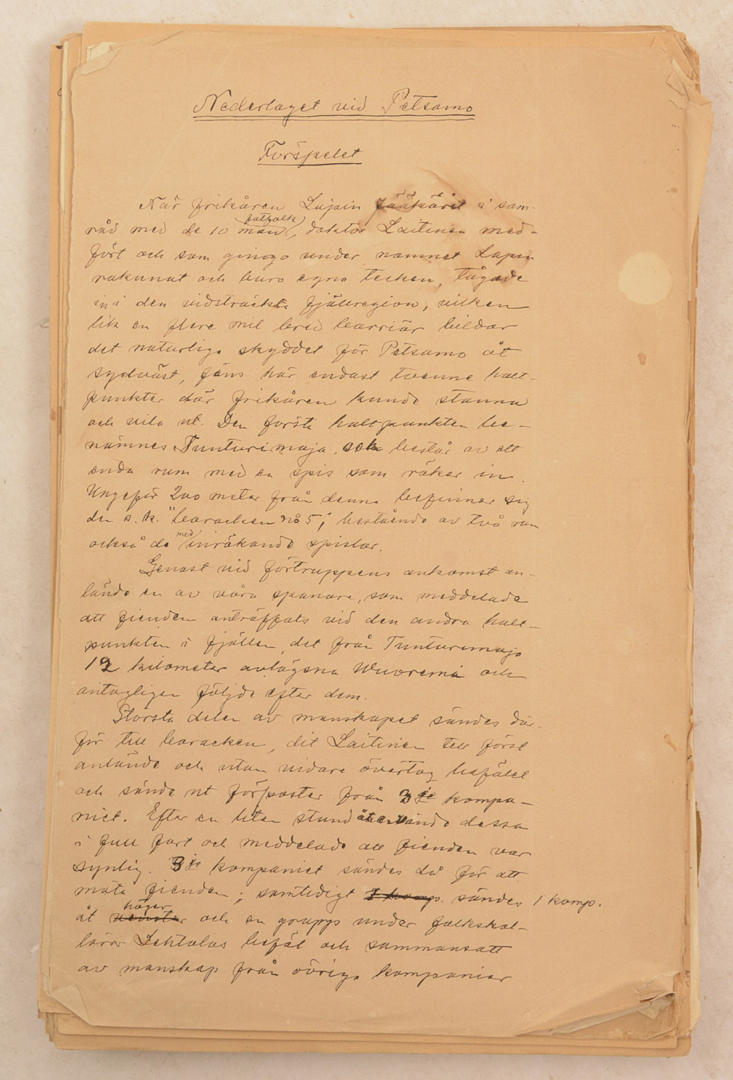 Nederlaget vid Petsamo
Förspelet
När frikåren Lapin jääkärit i sam-
råd med de 10 man, (fotfolk) doktor Laitinen med-
fört och som gingo under namnet Lapin
rakunat och buro egna tecken, tågade
in i den vidsträckta fjällregion, vilken
lik en flere mil bred barriär bildar
det naturliga skyddet för Petsamo åt
sydväst, fans här endast tvenne halt-
punkter där frikåren kunde stanna
och vila ut. Den första haltpunkten be-
nämnes Tunturimaja, och består av ett
enda rum med en spis som röker in.
Ungefär 200 meter från denna befinner sig
den s. k. "baracken no 5", bestående av två rum
också de med inrökande spislar.
Genast vid förtruppens ankomst an-
lände en av våra spanare, som meddelade
att fienden anträffats vid den andra halt-
punkten i fjällen, det från Tunturimaja
12 kilometer avlägsna Wuoremä och
antagligen följde efter dem.
Största delen av manskapet sändes där-
för till baracken, dit Laitinen till först
anlände och utan vidare övertog befälet
och sände ut förposter från 3je kompa-
niet. Efter en liten stund återvände dessa
i full fart och meddelade att fienden var
synlig. 3je kompaniet sändes då för att
möta fienden; samtidigt 1 komp. sändes 1 komp.
åt venster höger och en grupp under folkskol-
lärar Lehtolas befäl och sammansatt
av manskap från övriga kompanier